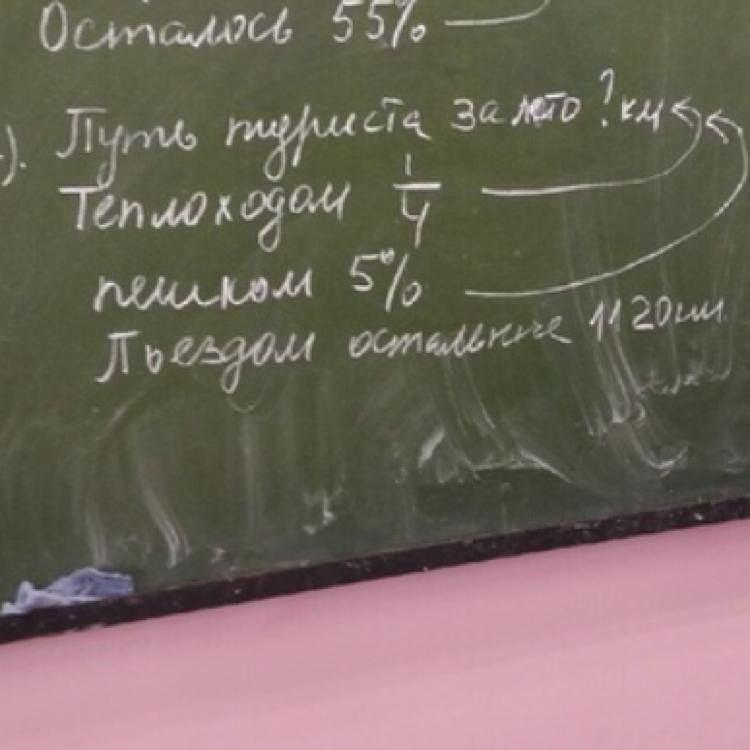 Осталось 55%
). Путь туриста за лето ? км
Теплоходом 1/4
пешком 5%
Поездом остальные 1120 км